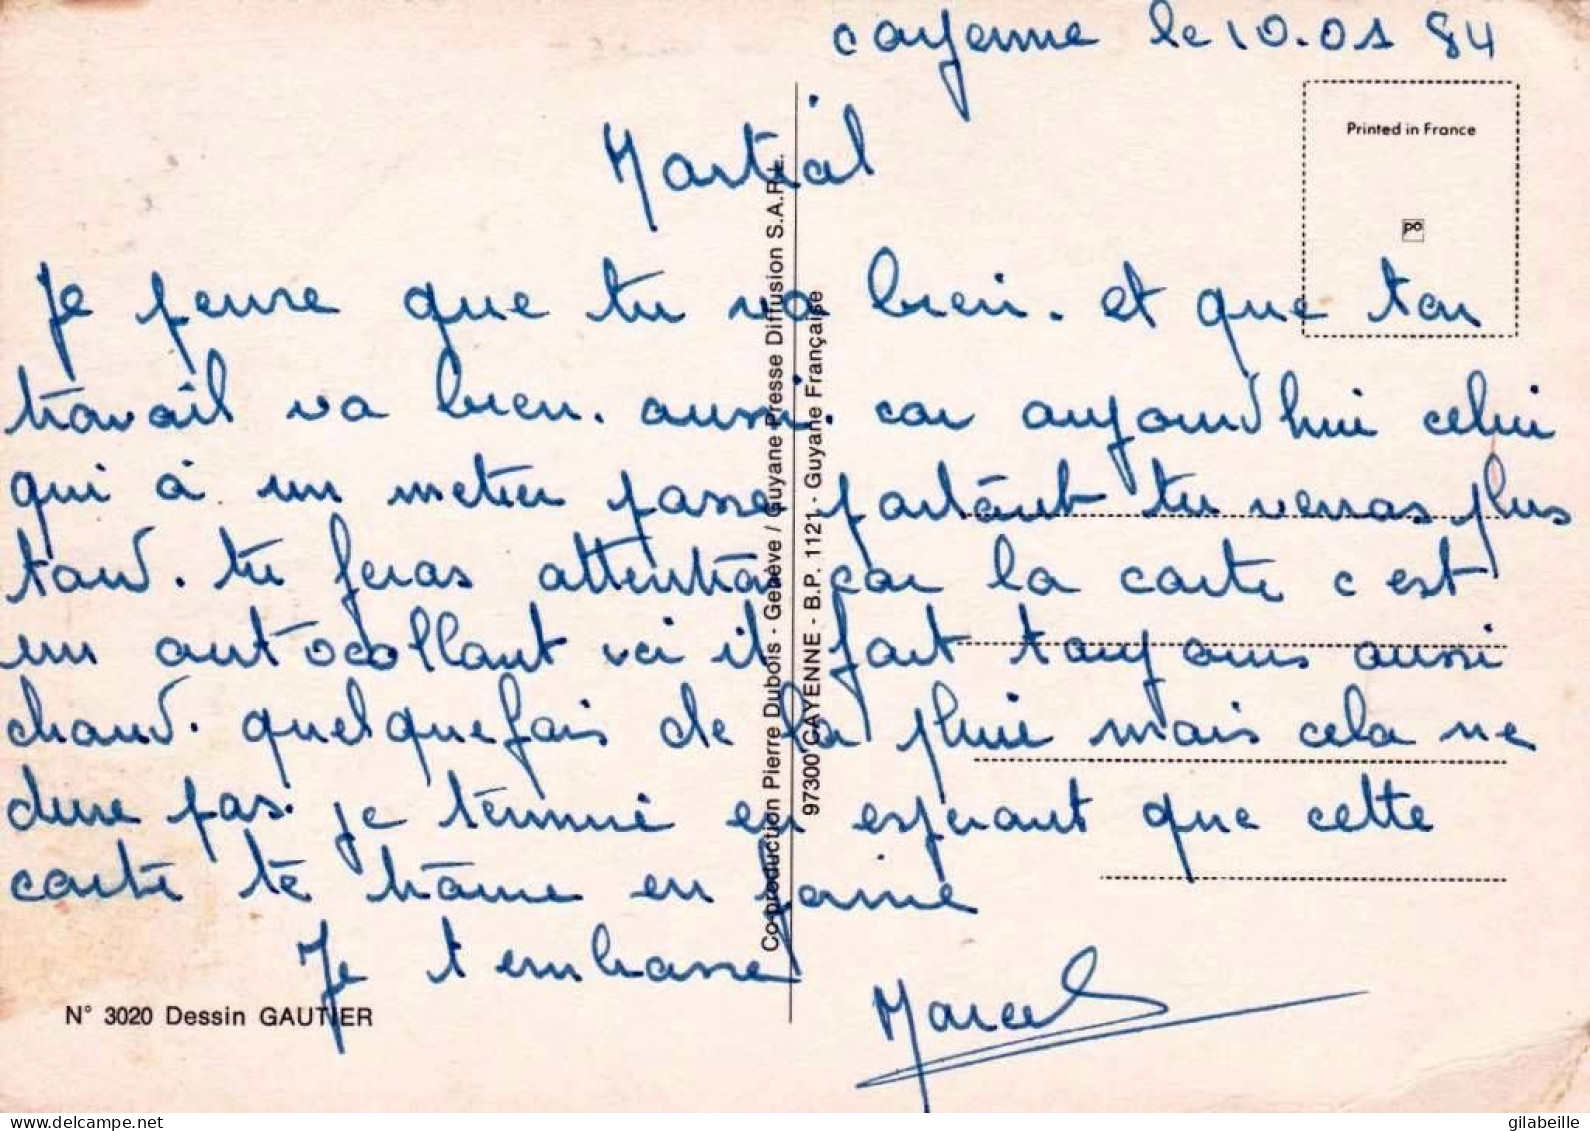 cayenne le 10.01 84
Printed in France
po
Martial
Je pense que tu va bien. et que ton
travail va bien. aussi. car aujourd'hui celui
qui à un metier passe partânt tu verras plus
tard. tu feras attention car la carte c'est
un autocollant ici il fait toujours aussi
chaud. quelquefois de la pluie mais cela ne
dure pas. je termine en esperant que cette
carte te trouve en forme
Je t'embrasse
Marcel
N° 3020 Dessin GAUTIER
Co-production Pierre Dubois - Genève / Guyane Presse Diffusion S.A.R.L.
97300 CAYENNE - B.P. 1121 - Guyane Française
gilabeille